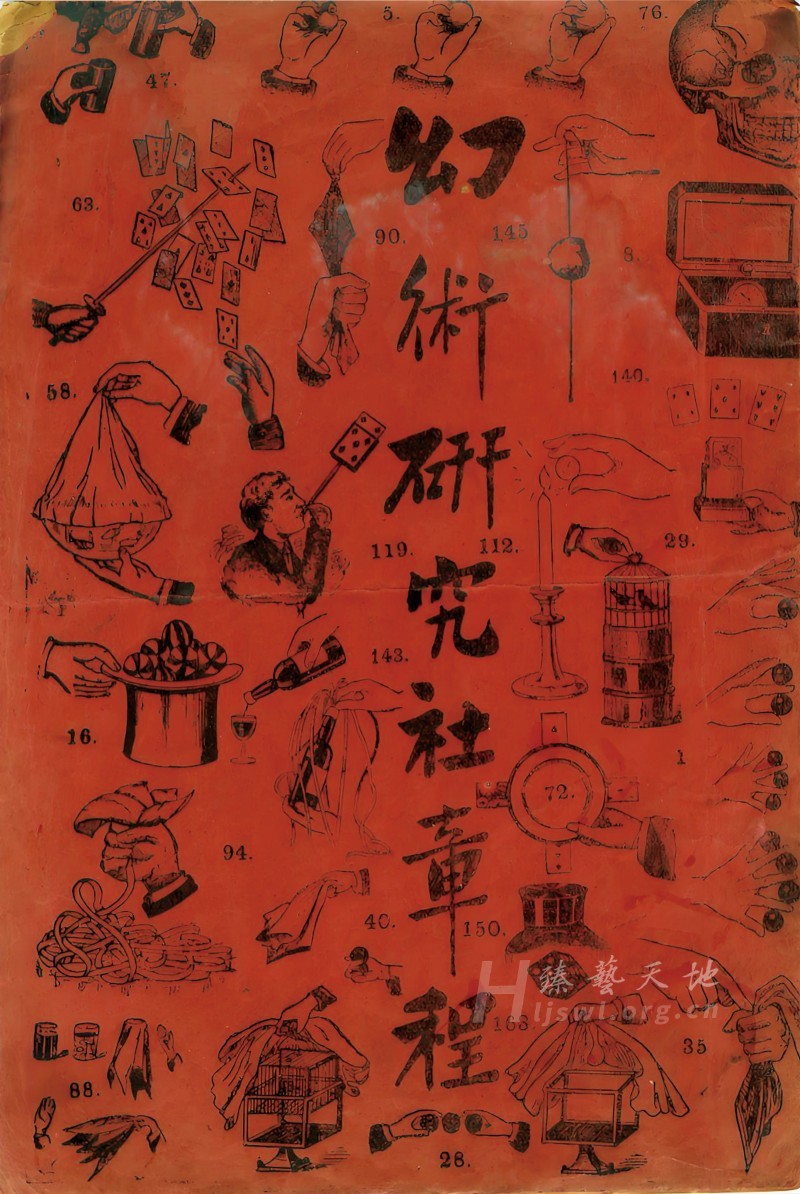 5.
76.
47.
幻術研究社章程
63.
90.
145
8.
140.
58.
119.
112.
29.
143.
16.
1
72.
94.
40.
150.
臻藝天地
Hljswl.org.cn
168.
35
88.
28.